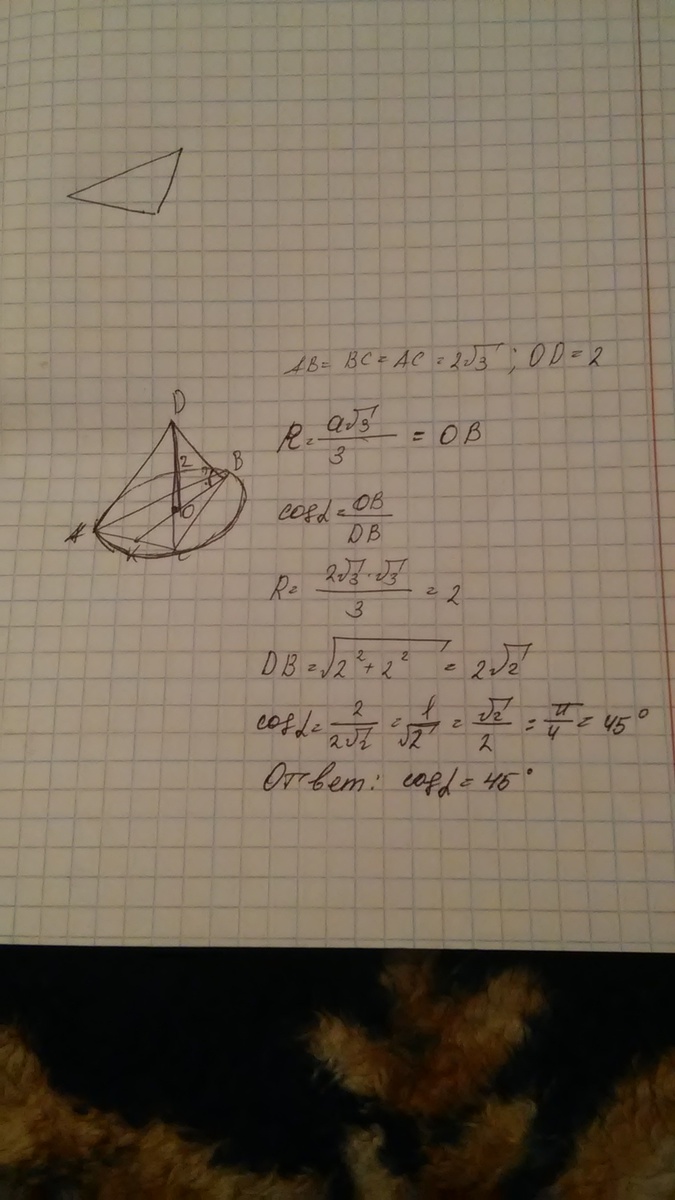 AB = BC = AC = 2√3 ; OD = 2
R = a√3 / 3 = OB
cosα = OB / DB
R = 2√3 · √3 / 3 = 2
DB = √2² + 2² = 2√2
cosα = 2 / 2√2 = 1 / √2 = √2 / 2 = π / 4 = 45°
Ответ: cosα = 45°
D
2
B
O
A
K
C